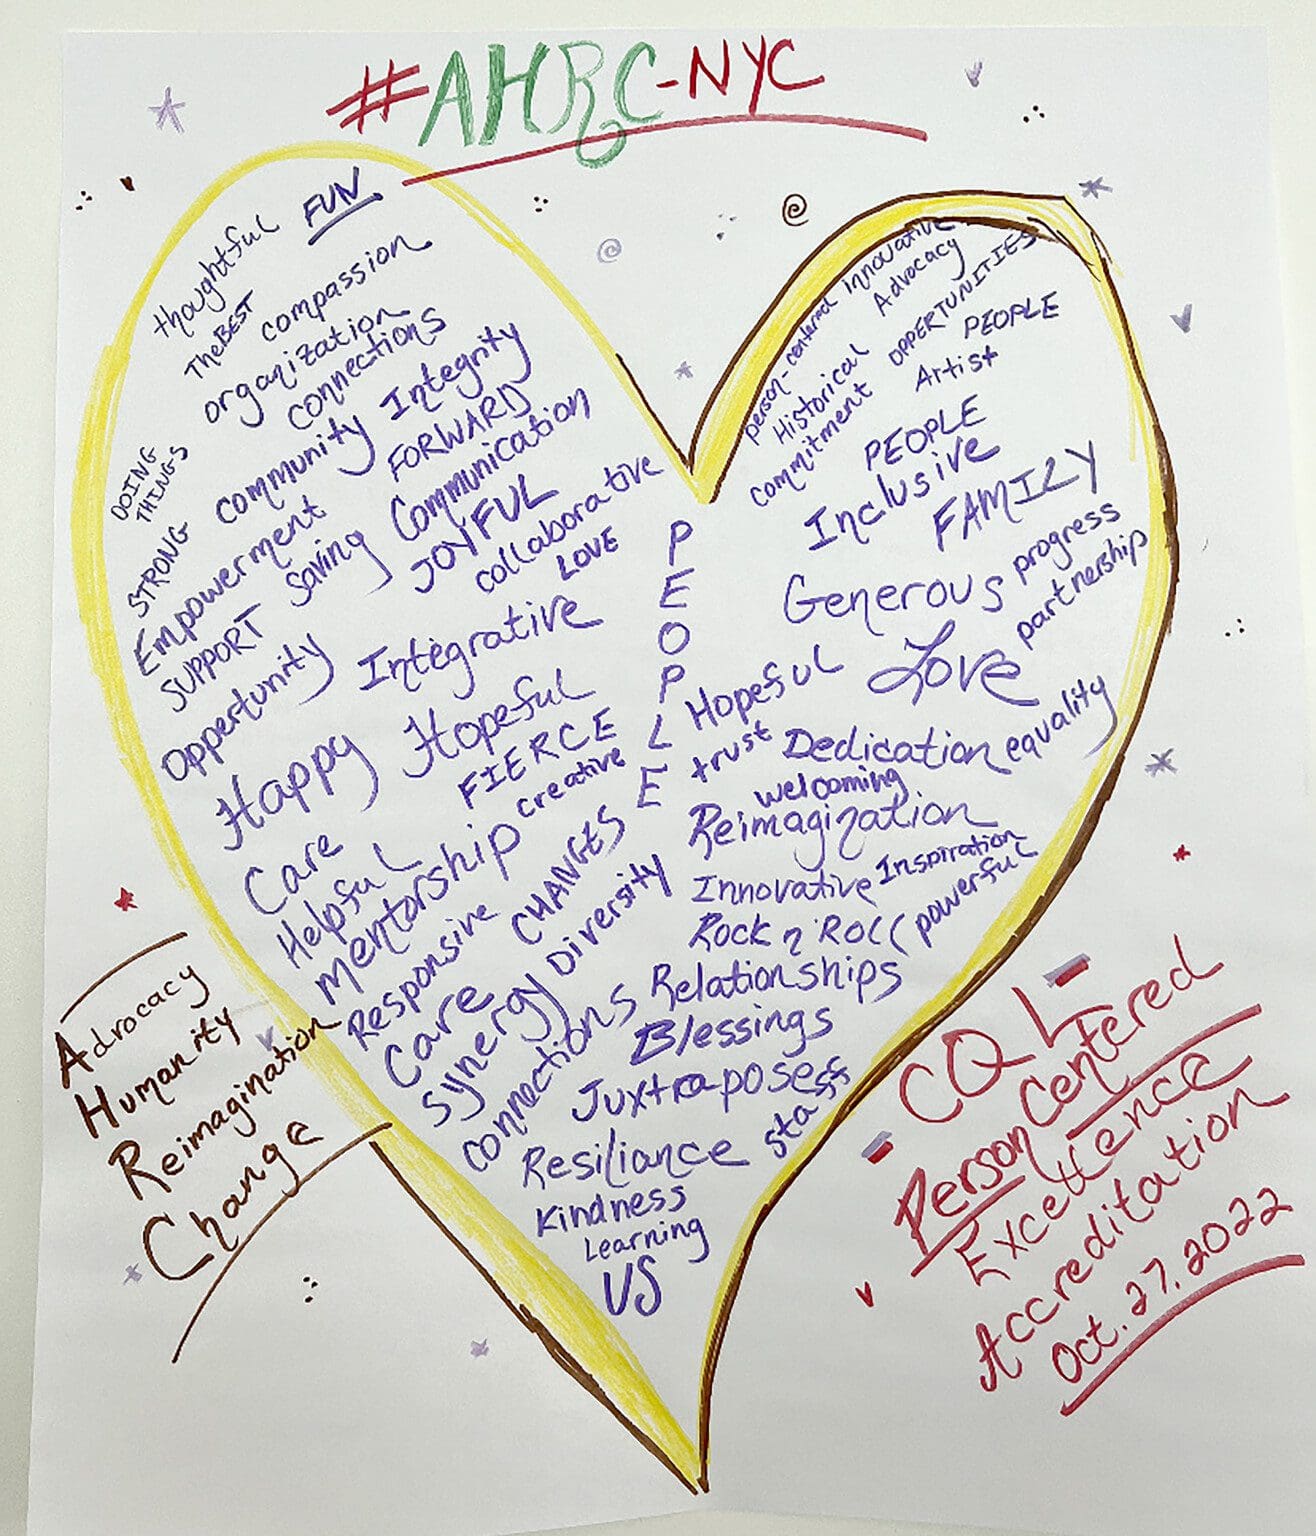 #AHRC-NYC
thoughtful
FUN
TheBEST
compassion
organization
connections
DOING
THINGS
community
Integrity
FORWARD
STRONG
Empowerment
saving
Communication
JOYFUL
collaborative
LOVE
SUPPORT
Oppertunity
Integrative
Happy
Hopeful
FIERCE
creative
Care
Helpful
mentorship
Responsive
CHANGES
Care
Synergy
Diversity
connections
PEOPLE
person-centered
innovative
Advocacy
Historical
OPPERTUNITIES
commitment
PEOPLE
Artist
PEOPLE
Inclusive
FAMILY
Generous
progress
partnership
Love
Hopeful
trust
Dedication
equality
welcoming
Reimagization
Innovative
Inspiration
Rock n' Roll
powerful
Relationships
Blessings
Juxtraposess
staff
Resiliance
Kindness
Learning
US
Advocacy
Humanity
Reimagination
Change
CQL-
Person Centered
Excellence
Accreditation
Oct. 27. 2022